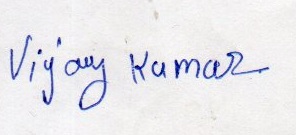 Vijay Kumar